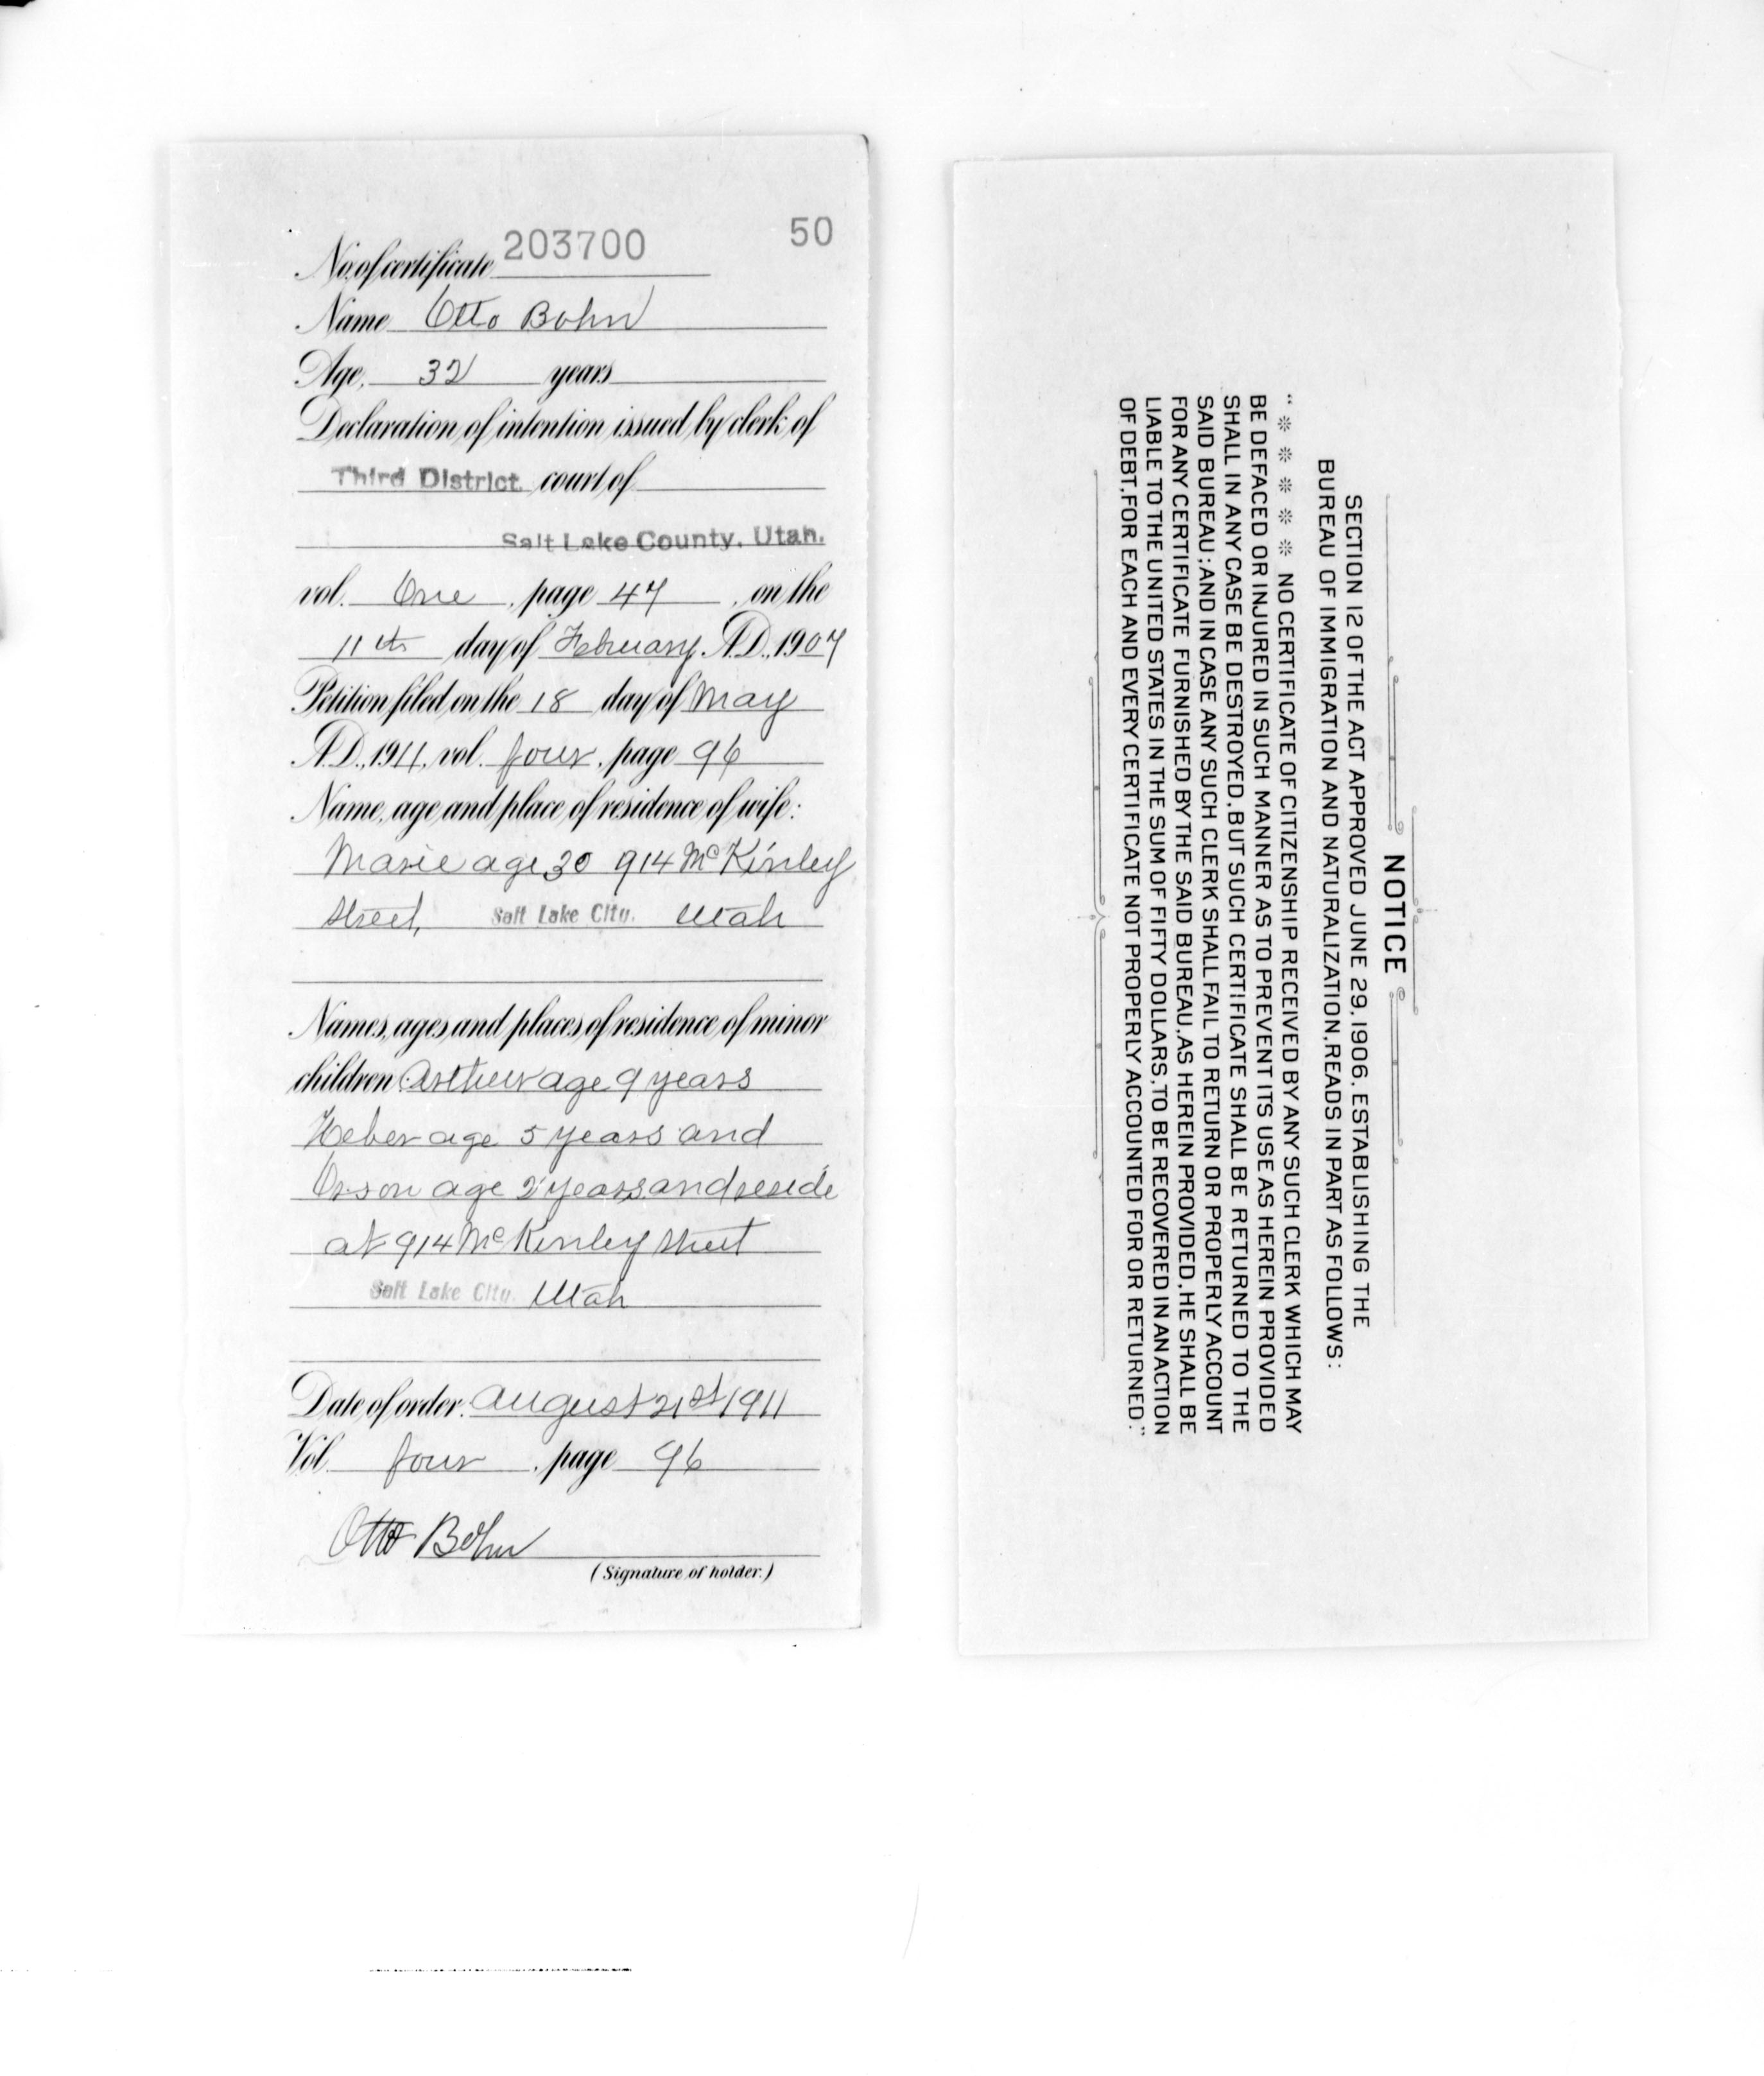 No. of certificate 203700 50
Name Otto Bohn
Age, 32 years
Declaration of intention issued by clerk of
Third District court of
Salt Lake County, Utah.
vol. One, page 47, on the
11th day of February, A.D., 1907
Petition filed on the 18 day of May
A.D., 1911, vol. four, page 96
Name, age and place of residence of wife:
Marie age 30 914 McKinley
Street, Salt Lake City, Utah
Names, ages and places of residence of minor
children: Arthur age 9 years
Heber age 5 years and
Orson age 2 years and reside
at 914 McKinley Street
Salt Lake City, Utah
Date of order, August 21st 1911
Vol. four, page 96
Otto Bohn
(Signature of holder.)
NOTICE
SECTION 12 OF THE ACT APPROVED JUNE 29, 1906, ESTABLISHING THE
BUREAU OF IMMIGRATION AND NATURALIZATION, READS IN PART AS FOLLOWS:
" * * * * * NO CERTIFICATE OF CITIZENSHIP RECEIVED BY ANY SUCH CLERK WHICH MAY
BE DEFACED OR INJURED IN SUCH MANNER AS TO PREVENT ITS USE AS HEREIN PROVIDED
SHALL IN ANY CASE BE DESTROYED, BUT SUCH CERTIFICATE SHALL BE RETURNED TO THE
SAID BUREAU; AND IN CASE ANY SUCH CLERK SHALL FAIL TO RETURN OR PROPERLY ACCOUNT
FOR ANY CERTIFICATE FURNISHED BY THE SAID BUREAU, AS HEREIN PROVIDED, HE SHALL BE
LIABLE TO THE UNITED STATES IN THE SUM OF FIFTY DOLLARS, TO BE RECOVERED IN AN ACTION
OF DEBT, FOR EACH AND EVERY CERTIFICATE NOT PROPERLY ACCOUNTED FOR OR RETURNED."